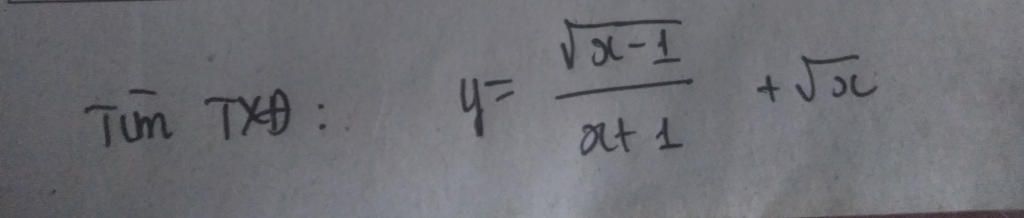 Tìm TXĐ : y = \frac{\sqrt{x-1}}{x+1} + \sqrt{x}